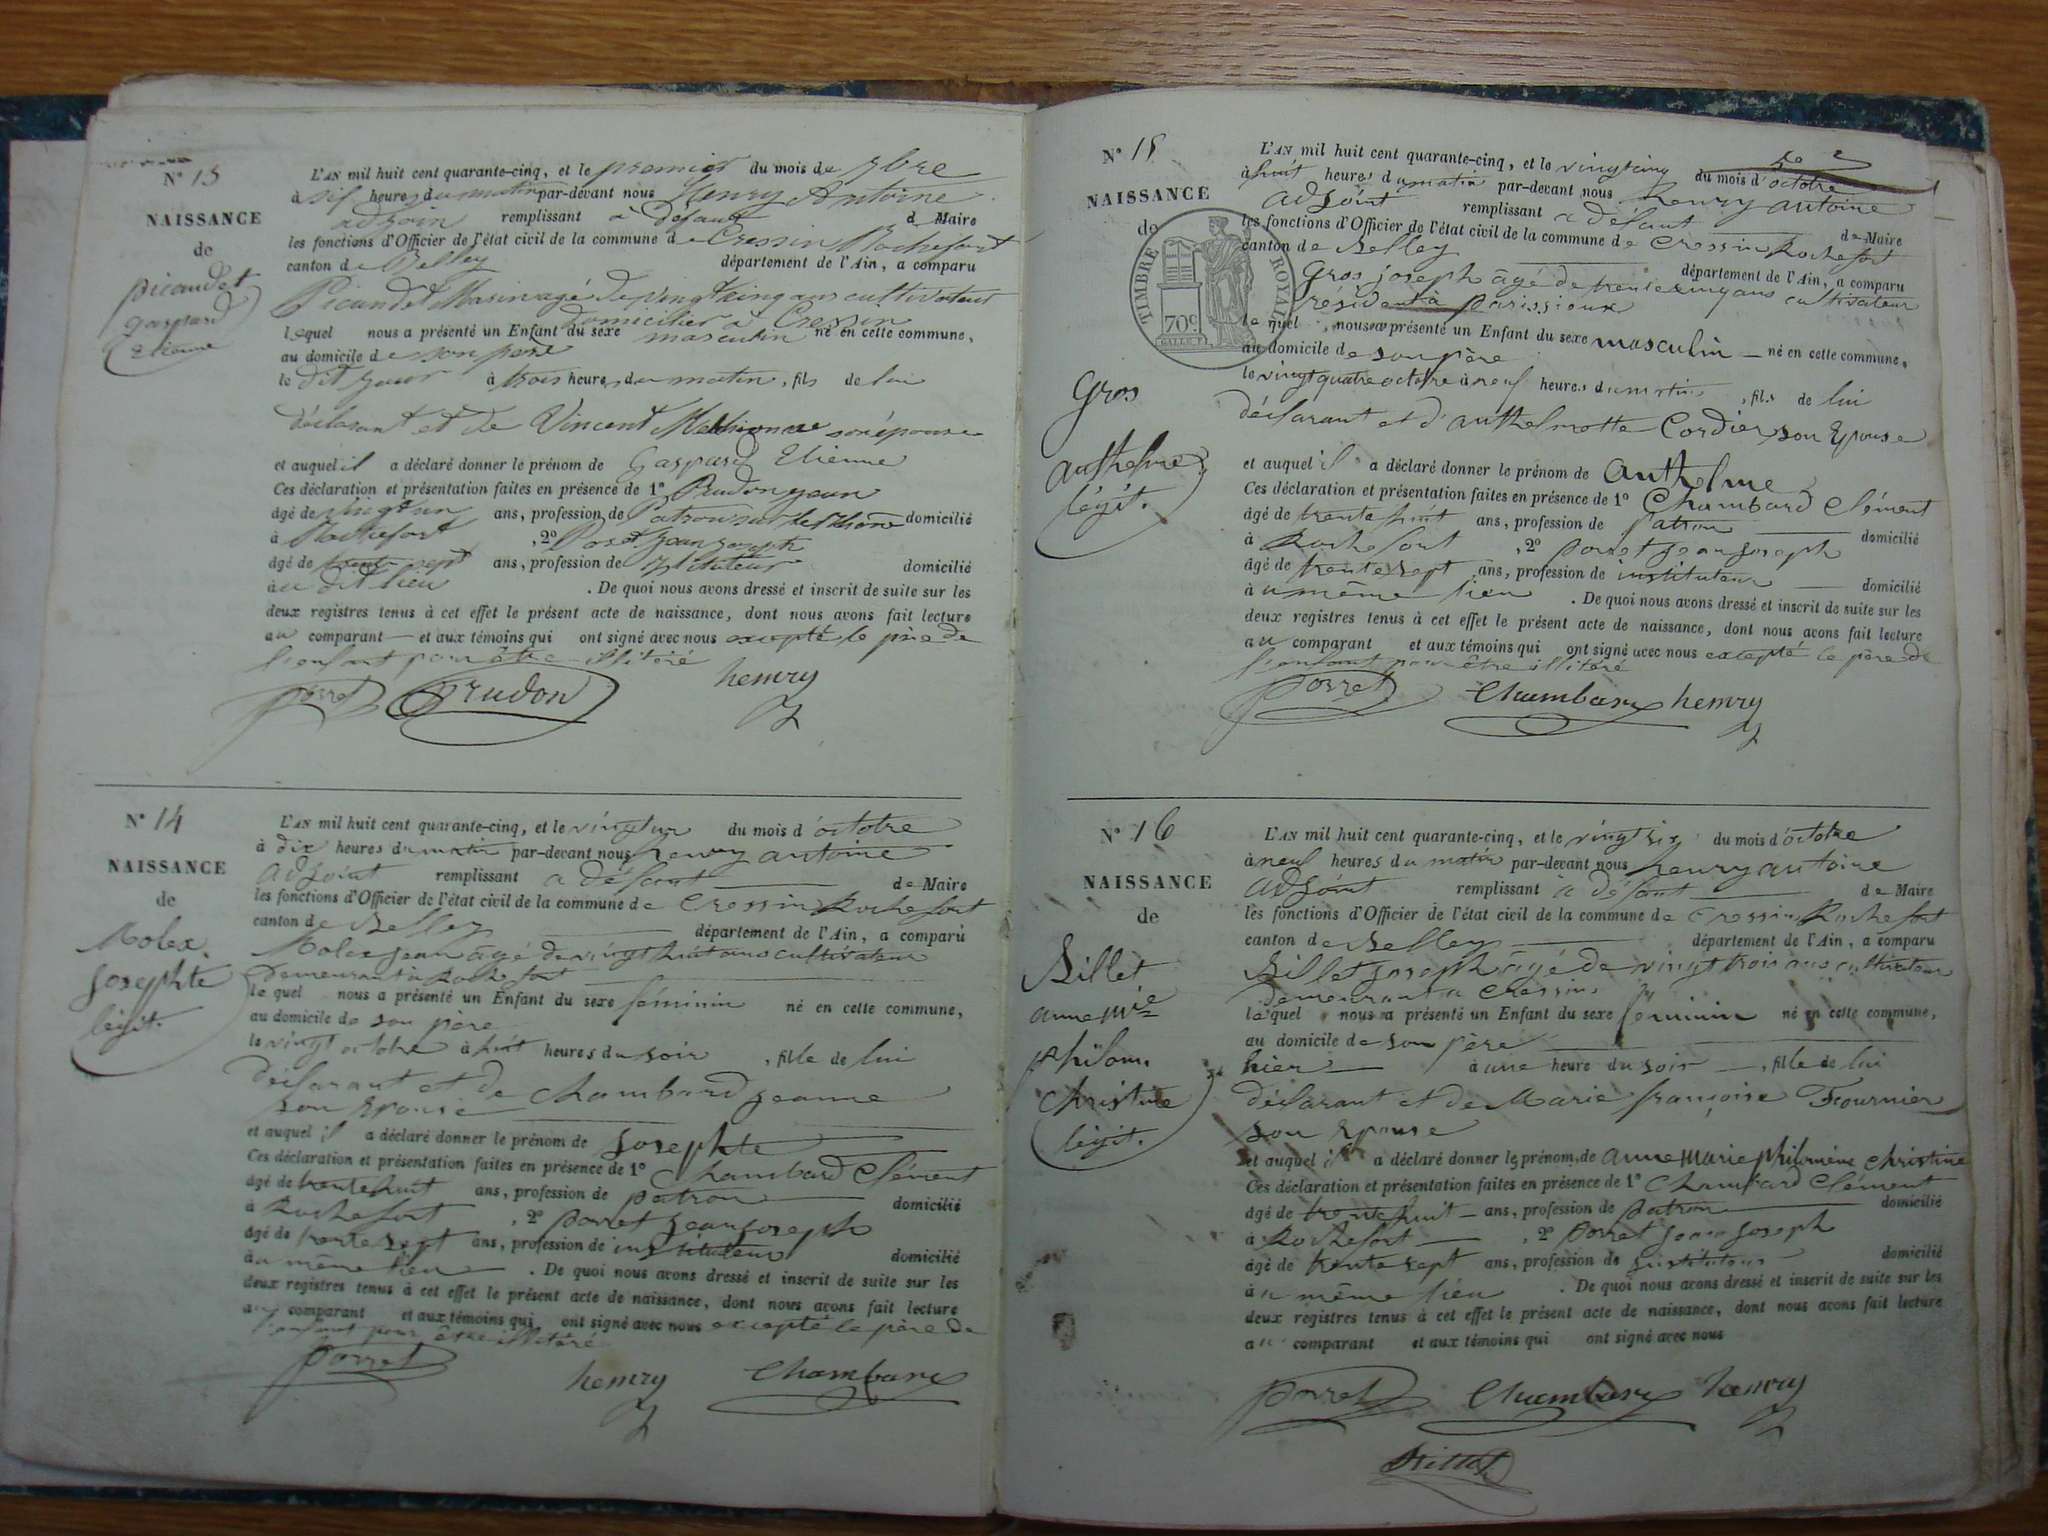 N° 13
NAISSANCE
de
picaudet
gaspard
Etienne
L'AN mil huit cent quarante-cinq, et le premier du mois de 9bre
à six heures du matin par-devant nous Henry Antoine
adjoin remplissant à défaut de Maire
les fonctions d'Officier de l'état civil de la commune de Cressin Rochefort
canton de Belley département de l'Ain, a comparu
Picaudet agé de vingt cinq ans cultivateur
domicilier à Cressin
lequel nous a présenté un Enfant du sexe masculin né en cette commune,
au domicile de son père
le dit jour à trois heures du matin, fils de lui
déclarant et de Vincent son épouse
et auquel il a déclaré donner le prénom de Gaspard Etienne
Ces déclaration et présentation faites en présence de 1° Prudon jean
âgé de vingt un ans, profession de Patron sur le Rhône domicilié
à Rochefort , 2° Poret jean joseph
âgé de trente sept ans, profession de instituteur domicilié
à au dit lieu . De quoi nous avons dressé et inscrit de suite sur les
deux registres tenus à cet effet le présent acte de naissance, dont nous avons fait lecture
au comparant et aux témoins qui ont signé avec nous excepté le père de
l'enfant pour être illitéré
porret prudon henry
N° 14
NAISSANCE
de
Molex
Josephte
légit.
L'AN mil huit cent quarante-cinq, et le vingtun du mois d'octobre
à dix heures du matin par-devant nous henry antoine
adjoint remplissant a défaut de Maire
les fonctions d'Officier de l'état civil de la commune de Cressin Rochefort
canton de Belley département de l'Ain, a comparu
Molex jean âgé de vingt huit ans cultivateur
demeurant à Rochefort
le quel nous a présenté un Enfant du sexe féminin né en cette commune,
au domicile de son père
le vingt octobre à huit heures du soir , fille de lui
déclarant et de chambard jeanne
son Epouse
et auquel il a déclaré donner le prénom de Josephte
Ces déclaration et présentation faites en présence de 1° Chambard Clément
âgé de trente huit ans, profession de patron domicilié
à Rochefort , 2° porret jean joseph
âgé de trente sept ans, profession de instituteur domicilié
à u même lieu . De quoi nous avons dressé et inscrit de suite sur les
deux registres tenus à cet effet le présent acte de naissance, dont nous avons fait lecture
au comparant et aux témoins qui ont signé avec nous excepté le père de
l'enfant pour être illitéré
porret henry Chambard
N° 15
NAISSANCE
de
TIMBRE ROYAL
70c
Gros
anthelme
légit.
L'AN mil huit cent quarante-cinq, et le vingtcinq du mois d'octobre
à huit heures du matin par-devant nous henry antoine
adjoint remplissant a défaut de Maire
les fonctions d'Officier de l'état civil de la commune de Cressin Rochefort
canton de Belley département de l'Ain, a comparu
Gros joseph âgé de trente cinq ans cultivateur
résident à parissieux
le quel nous a présenté un Enfant du sexe masculin né en cette commune,
au domicile de son père
le vingtquatre octobre à neuf heures du matin , fils de lui
déclarant et d'anthelmette Cordier son Epouse
et auquel il a déclaré donner le prénom de anthelme
Ces déclaration et présentation faites en présence de 1° Chambard Clément
âgé de trente huit ans, profession de patron domicilié
à Rochefort , 2° porret jean joseph
âgé de trente sept ans, profession de instituteur domicilié
à u même lieu . De quoi nous avons dressé et inscrit de suite sur les
deux registres tenus à cet effet le présent acte de naissance, dont nous avons fait lecture
au comparant et aux témoins qui ont signé avec nous excepté le père de
l'enfant pour être illitéré
porret Chambard henry
N° 16
NAISSANCE
de
Billet
anne mie
philom.
christine
légit.
L'AN mil huit cent quarante-cinq, et le vingt six du mois d'octobre
à neuf heures du matin par-devant nous henry antoine
adjoint remplissant à défaut de Maire
les fonctions d'Officier de l'état civil de la commune de Cressin Rochefort
canton de Belley département de l'Ain, a comparu
Billet joseph âgé de vingt trois ans cultivateur
demeurant a Cressin
le quel nous a présenté un Enfant du sexe féminin né en cette commune,
au domicile de son père
hier à une heure du soir , fille de lui
déclarant et de Marie françoise Fournier
son Epouse
et auquel il a déclaré donner le prénom de anne marie philomène christine
Ces déclaration et présentation faites en présence de 1° Chambard Clément
âgé de trente huit ans, profession de patron domicilié
à Rochefort , 2° porret jean joseph
âgé de trente sept ans, profession de instituteur domicilié
à u même lieu . De quoi nous avons dressé et inscrit de suite sur les
deux registres tenus à cet effet le présent acte de naissance, dont nous avons fait lecture
au comparant et aux témoins qui ont signé avec nous
porret Chambard henry
Billet